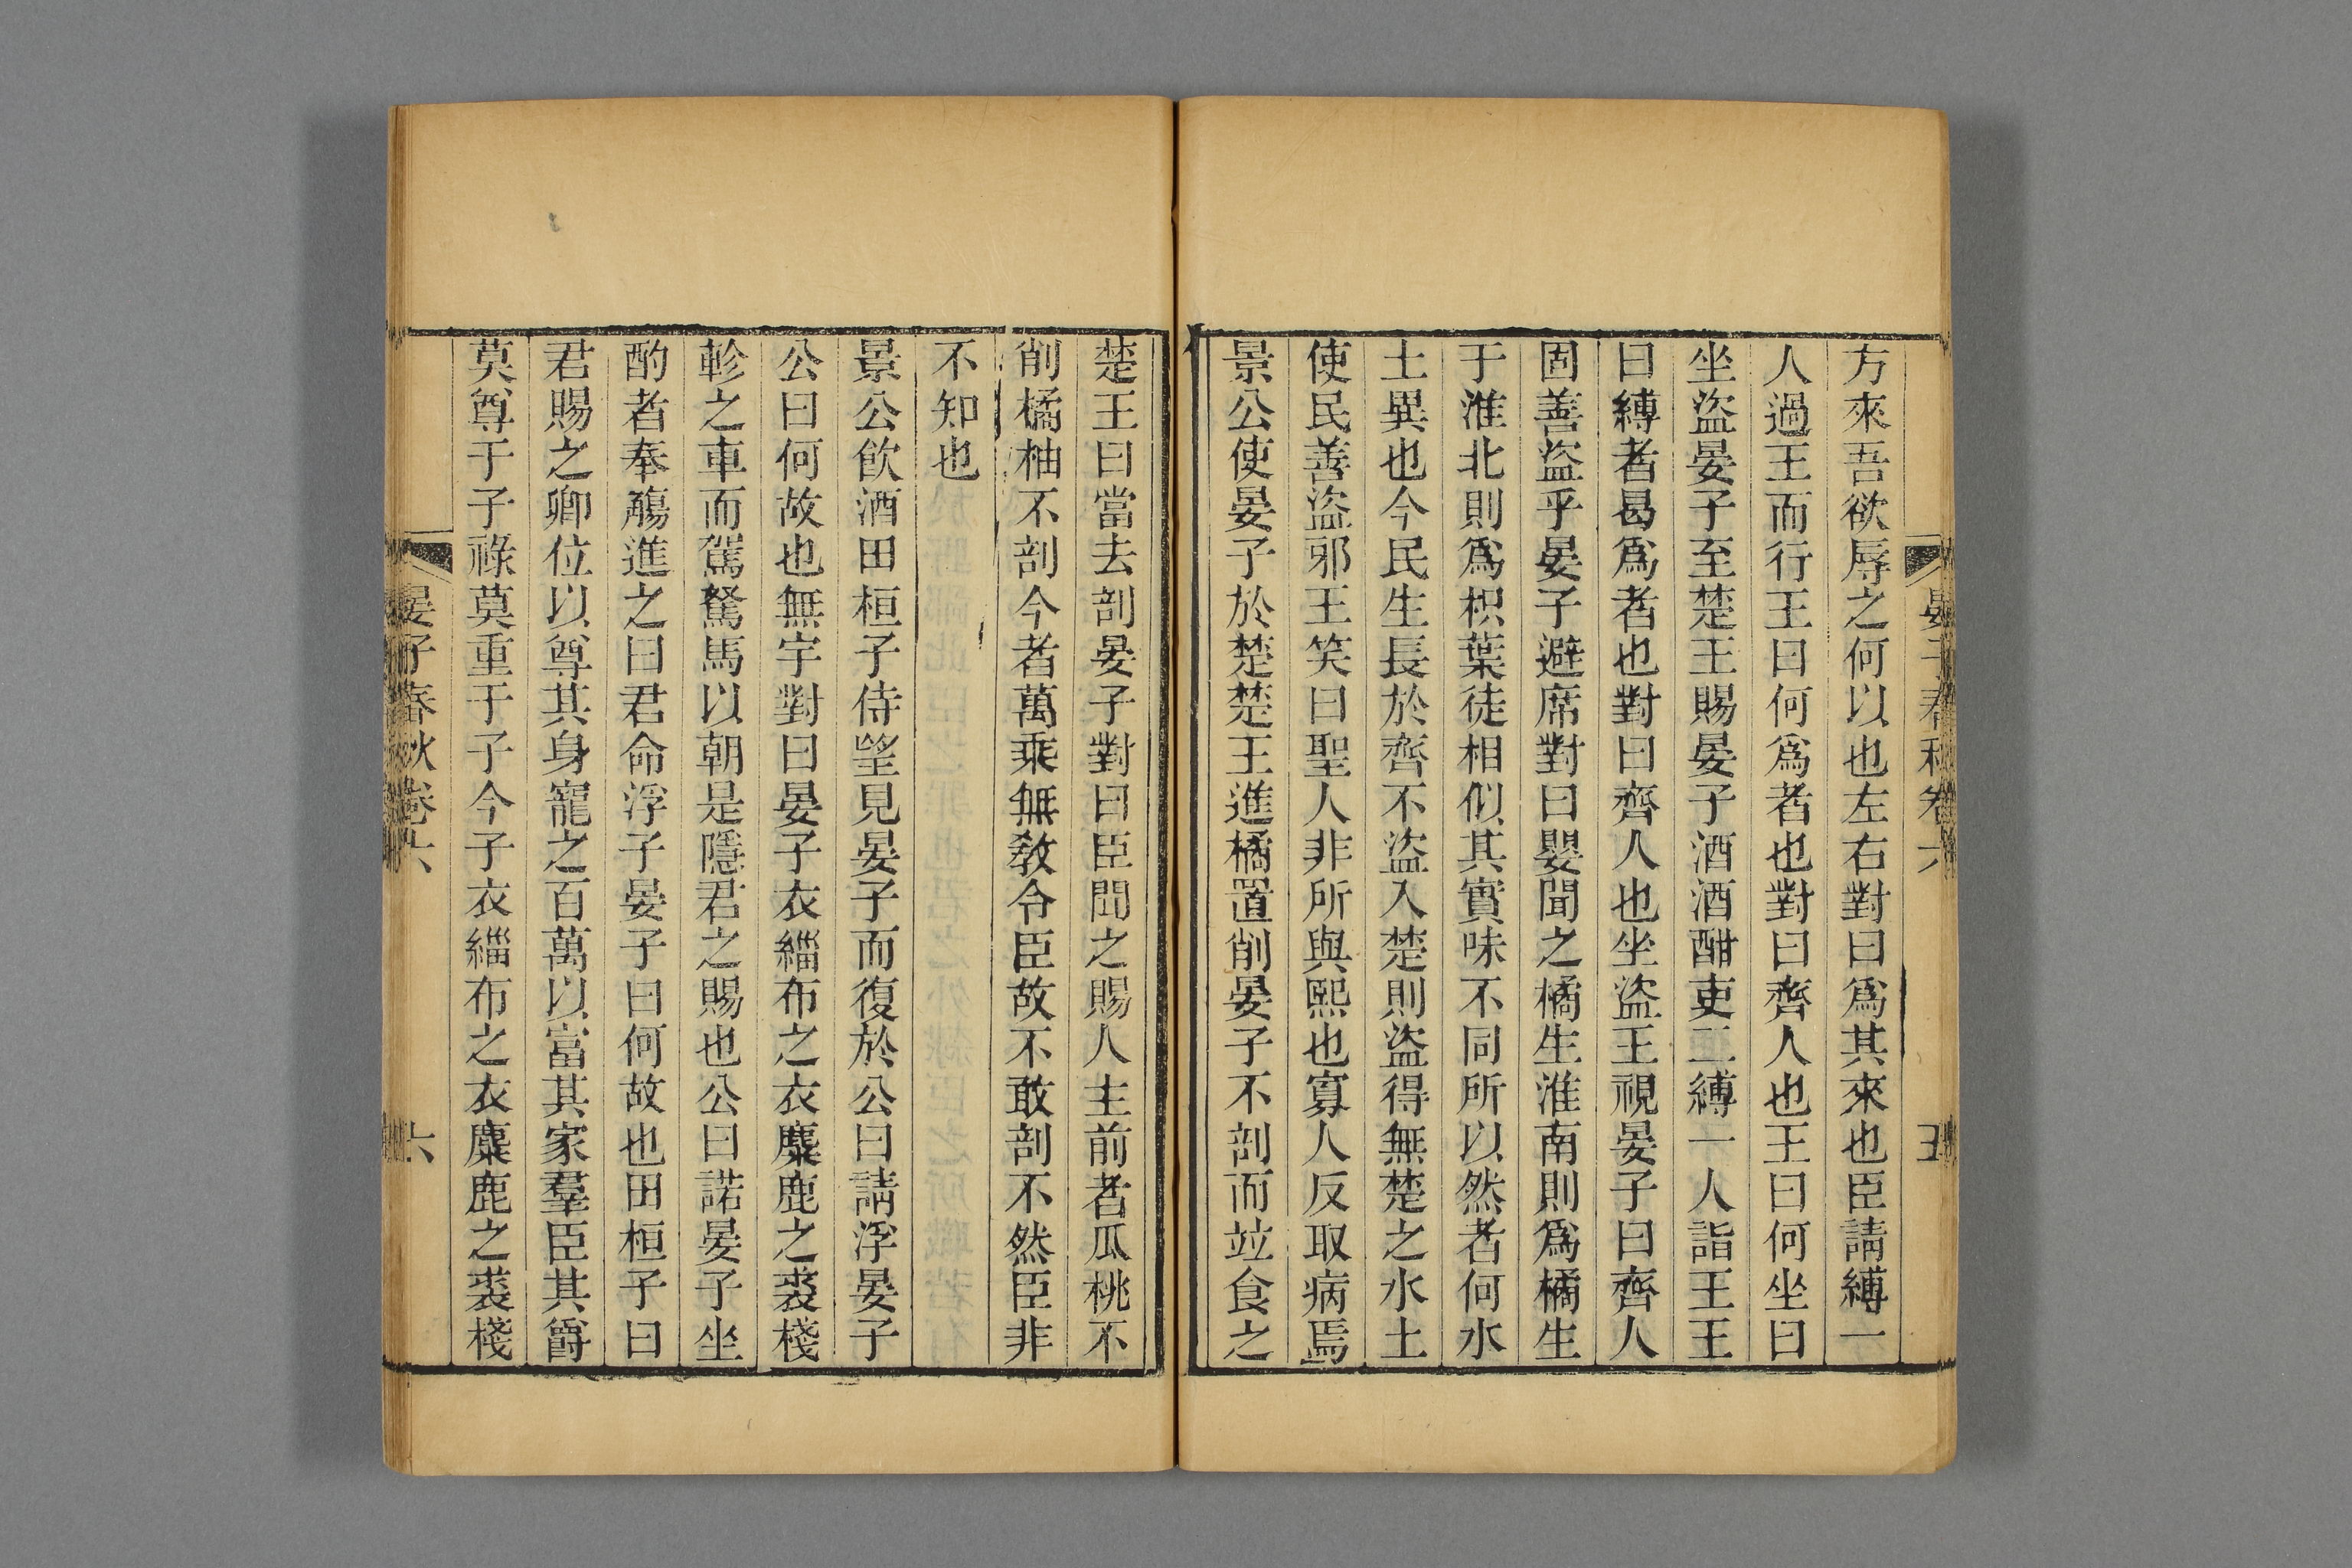 晏子春秋卷六
五
方來吾欲辱之何以也左右對曰爲其來也臣請縛一
人過王而行王曰何爲者也對曰齊人也王曰何坐曰
坐盜晏子至楚王賜晏子酒酒酣吏二縛一人詣王王
曰縛者曷爲者也對曰齊人也坐盜王視晏子曰齊人
固善盜乎晏子避席對曰嬰聞之橘生淮南則爲橘生
于淮北則爲枳葉徒相似其實味不同所以然者何水
土異也今民生長於齊不盜入楚則盜得無楚之水土
使民善盜邪王笑曰聖人非所與熙也寡人反取病焉
景公使晏子於楚楚王進橘置削晏子不剖而竝食之
楚王曰當去剖晏子對曰臣聞之賜人主前者瓜桃不
削橘柚不剖今者萬乘無敎令臣故不敢剖不然臣非
不知也
景公飮酒田桓子侍望見晏子而復於公曰請浮晏子
公曰何故也無宇對曰晏子衣緇布之衣麋鹿之裘棧
軫之車而駕駑馬以朝是隱君之賜也公曰諾晏子坐
酌者奉觴進之曰君命浮子晏子曰何故也田桓子曰
君賜之卿位以尊其身寵之百萬以富其家羣臣其爵
莫尊于子祿莫重于子今子衣緇布之衣麋鹿之裘棧
晏子春秋卷六
六